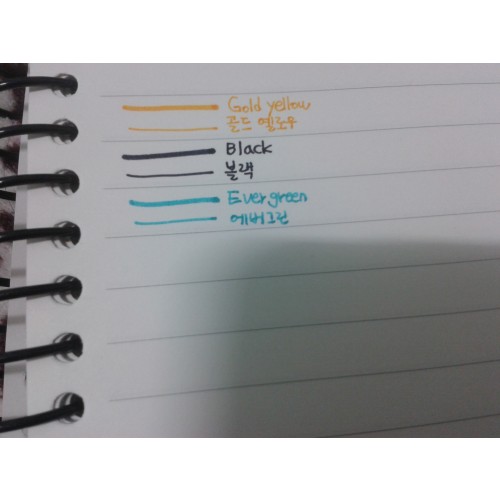 Gold yellow
골드 옐로우
Black
블랙
Evergreen
에버그린